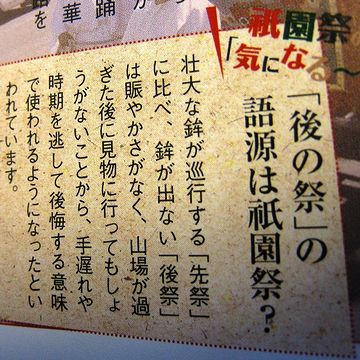 祇園祭
「気になる
「後の祭」の
語源は祇園祭？
壮大な鉾が巡行する「先祭」
に比べ、鉾が出ない「後祭」
は賑やかさがなく、山場が過
ぎた後に見物に行ってもしょ
うがないことから、手遅れや
時期を逃して後悔する意味
で使われるようになったとい
われています。
ら
が
踊
華
路を